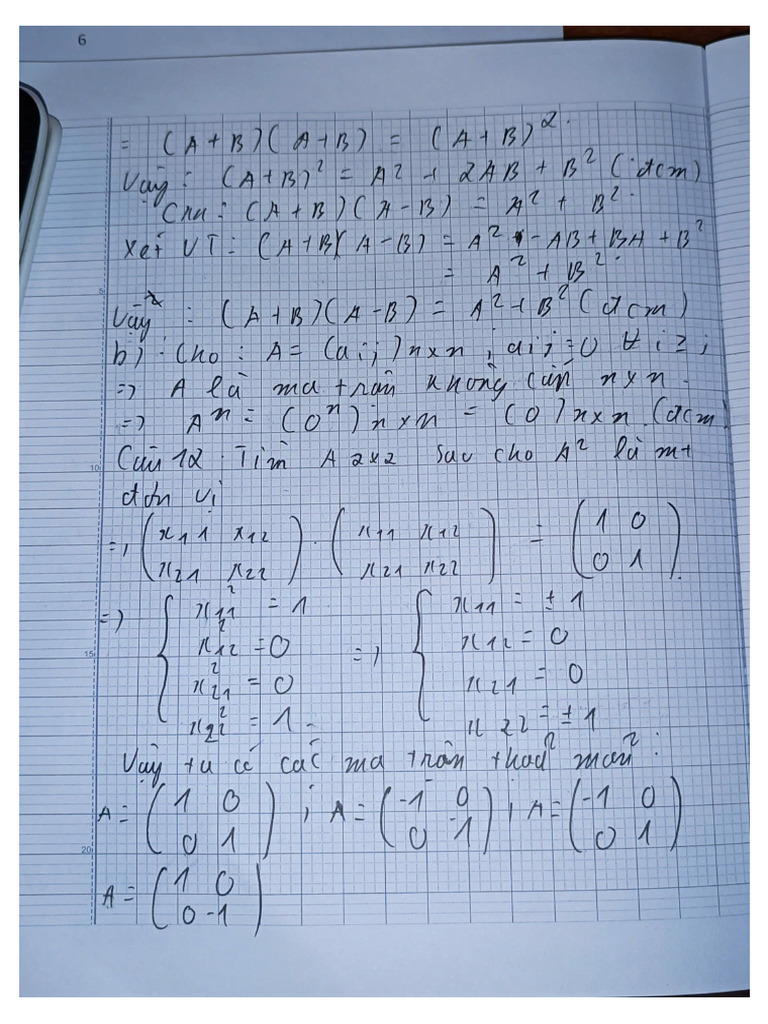 6
= (A+B)(A+B) = (A+B)².
Vậy: (A+B)² = A² + 2AB + B² (đcm)
Cm: (A+B)(A-B) = A² + B².
Xét VT: (A+B)(A-B) = A² - AB + BA + B²
= A² + B².
Vậy : (A+B)(A-B) = A² + B² (đcm)
b) Cho : A = (aij)n×n ; aij = 0 ∀ i ≥ j
=> A là ma trận không cấp n×n.
=> Aⁿ = (0ⁿ)n×n = (0)n×n (đcm
Câu 12. Tìm A 2×2 sao cho A² là mt
đơn vị
=> (x11 x12) . (x11 x12) = (1 0)
(x21 x22) (x21 x22) (0 1).
=> { x11² = 1 => { x11 = ±1
x12² = 0 x12 = 0
x21² = 0 x21 = 0
x22² = 1. x22 = ±1
Vậy ta có các ma trận thoả mãn :
A = (1 0) ; A = (-1 0) ; A = (-1 0)
(0 1) (0 -1) (0 1)
A = (1 0)
(0 -1)